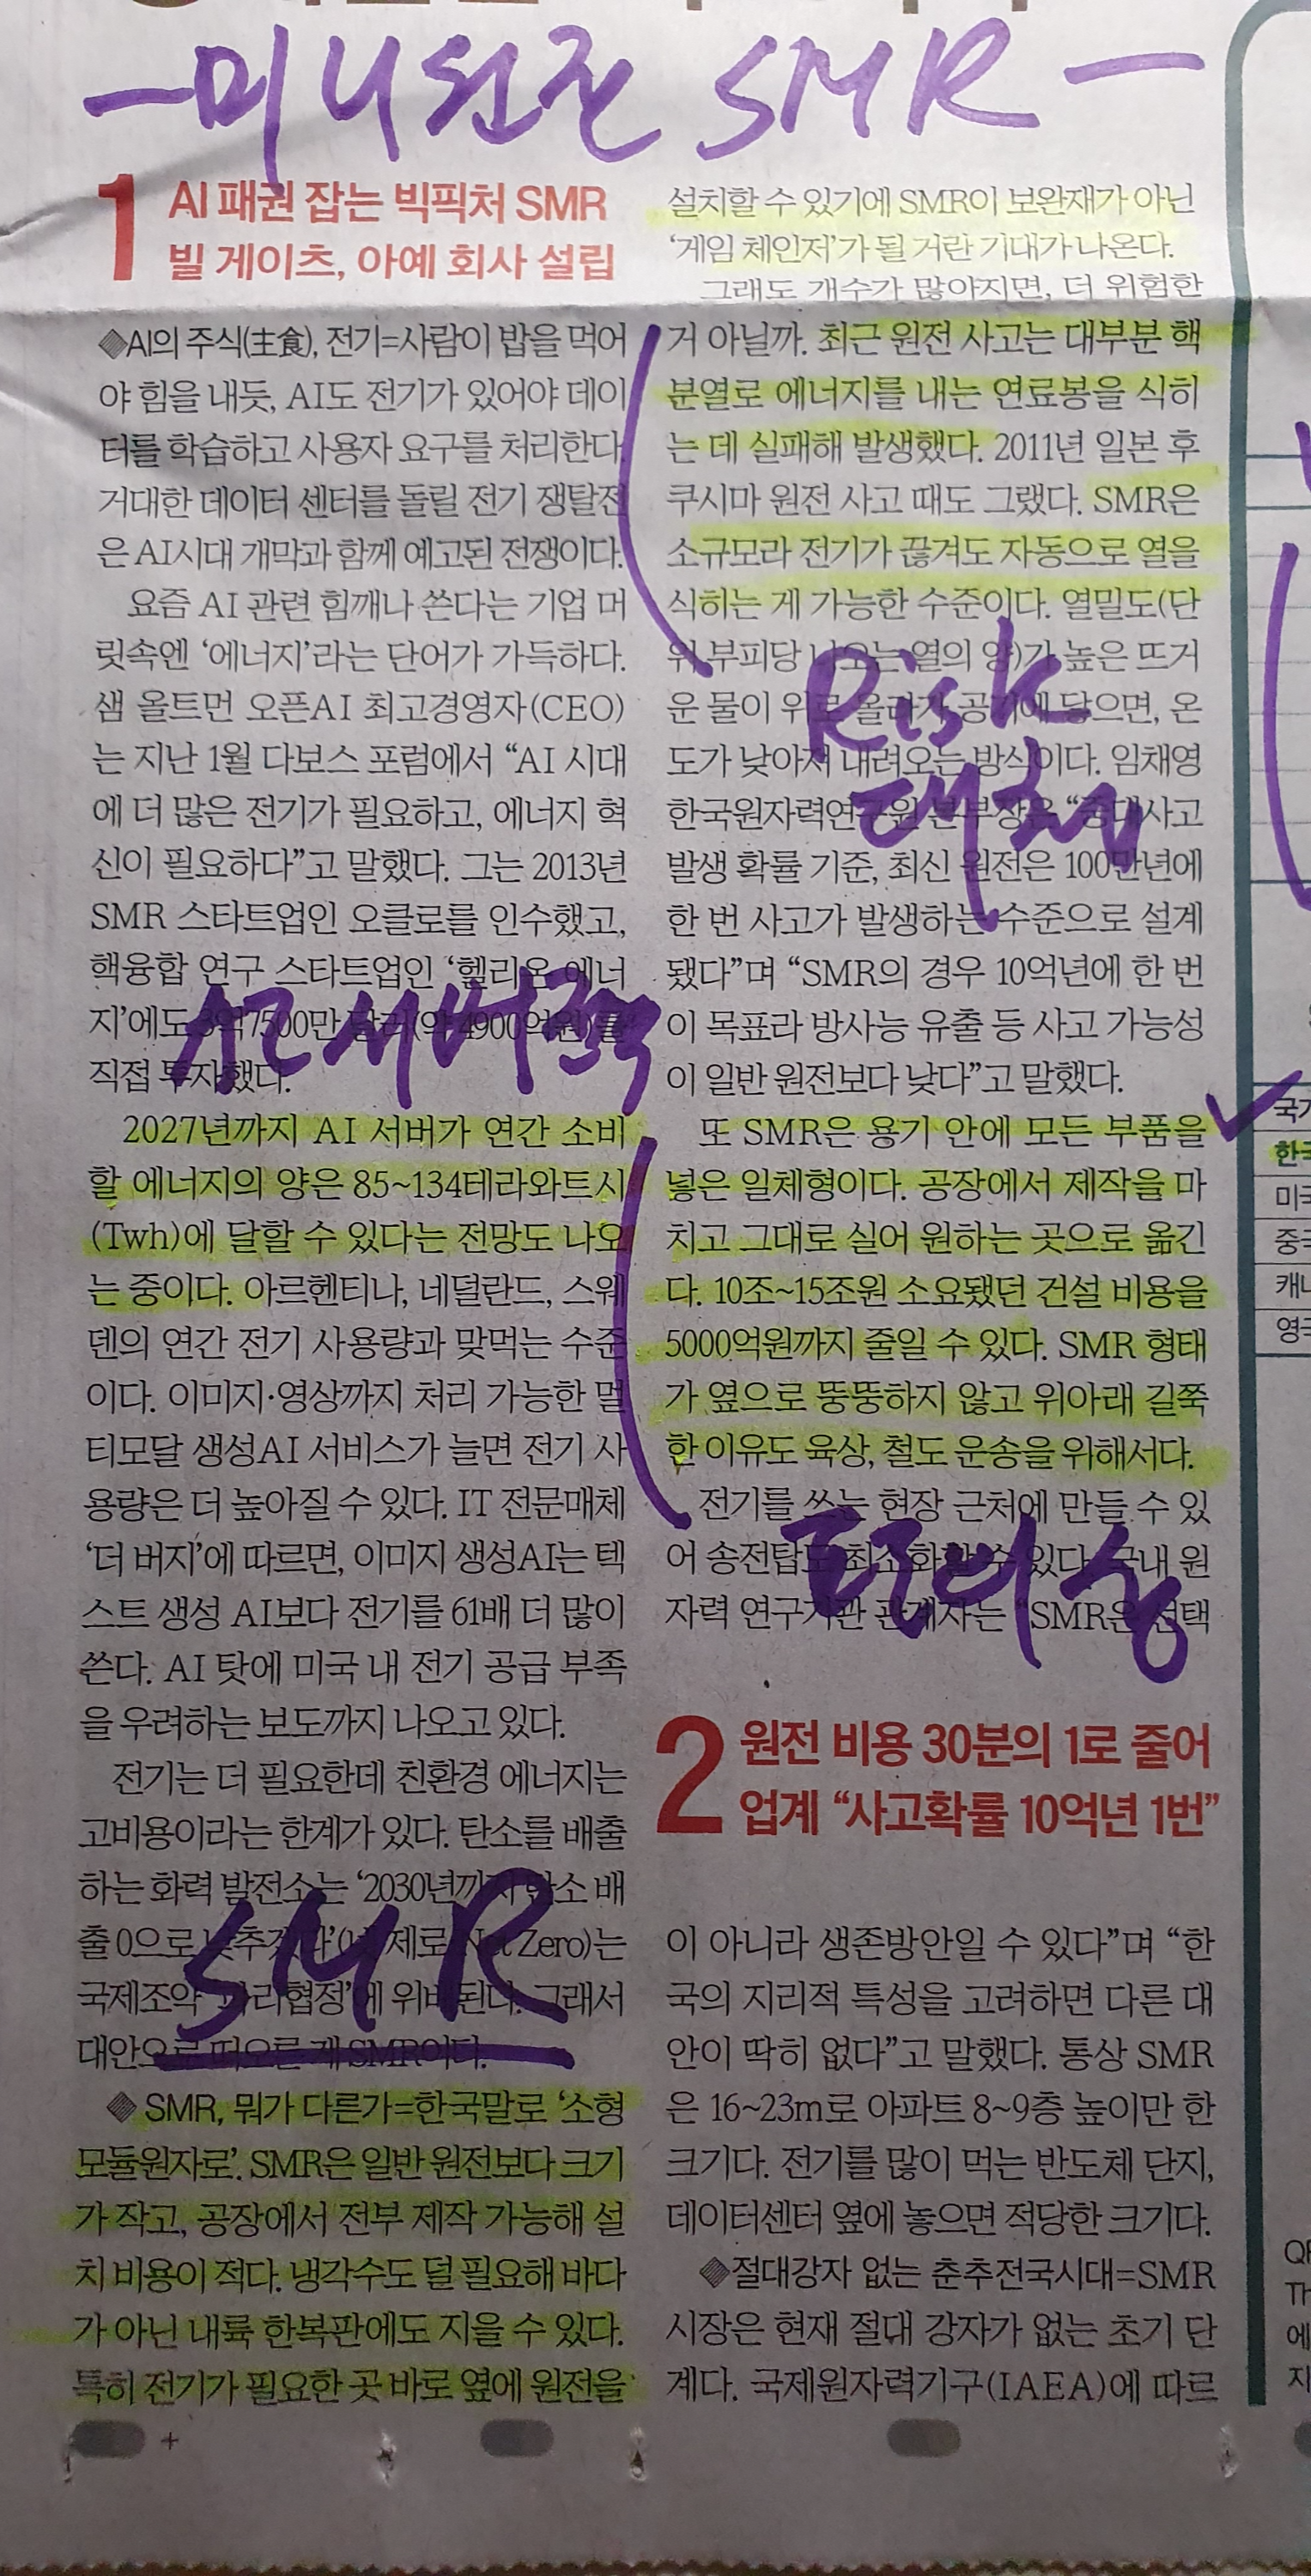 -미니원전 SMR-
1
AI 패권 잡는 빅픽처 SMR
빌 게이츠, 아예 회사 설립
◆AI의 주식(主食), 전기=사람이 밥을 먹어
야 힘을 내듯, AI도 전기가 있어야 데이
터를 학습하고 사용자 요구를 처리한다.
거대한 데이터 센터를 돌릴 전기 쟁탈전
은 AI시대 개막과 함께 예고된 전쟁이다.
요즘 AI 관련 힘깨나 쓴다는 기업 머
릿속엔 ‘에너지’라는 단어가 가득하다.
샘 올트먼 오픈AI 최고경영자(CEO)
는 지난 1월 다보스 포럼에서 “AI 시대
에 더 많은 전기가 필요하고, 에너지 혁
신이 필요하다”고 말했다. 그는 2013년
SMR 스타트업인 오클로를 인수했고,
핵융합 연구 스타트업인 ‘헬리온 에너
지’에도 3억7500만 달러(약 4900억원)를
직접 투자했다.
2027년까지 AI 서버가 연간 소비
할 에너지의 양은 85~134테라와트시
(Twh)에 달할 수 있다는 전망도 나오
는 중이다. 아르헨티나, 네덜란드, 스웨
덴의 연간 전기 사용량과 맞먹는 수준
이다. 이미지·영상까지 처리 가능한 멀
티모달 생성AI 서비스가 늘면 전기 사
용량은 더 높아질 수 있다. IT 전문매체
‘더 버지’에 따르면, 이미지 생성AI는 텍
스트 생성 AI보다 전기를 61배 더 많이
쓴다. AI 탓에 미국 내 전기 공급 부족
을 우려하는 보도까지 나오고 있다.
전기는 더 필요한데 친환경 에너지는
고비용이라는 한계가 있다. 탄소를 배출
하는 화력 발전소는 ‘2030년까지 탄소 배
출 0으로 낮추겠다’(넷제로·Net Zero)는
국제조약 ‘파리협정’에 위배된다. 그래서
대안으로 떠오른 게 SMR이다.
SMR
◆SMR, 뭐가 다른가=한국말로 ‘소형
모듈원자로’. SMR은 일반 원전보다 크기
가 작고, 공장에서 전부 제작 가능해 설
치 비용이 적다. 냉각수도 덜 필요해 바다
가 아닌 내륙 한복판에도 지을 수 있다.
특히 전기가 필요한 곳 바로 옆에 원전을
설치할 수 있기에 SMR이 보완재가 아닌
‘게임 체인저’가 될 거란 기대가 나온다.
그래도 개수가 많아지면, 더 위험한
거 아닐까. 최근 원전 사고는 대부분 핵
분열로 에너지를 내는 연료봉을 식히
는 데 실패해 발생했다. 2011년 일본 후
쿠시마 원전 사고 때도 그랬다. SMR은
소규모라 전기가 끊겨도 자동으로 열을
식히는 게 가능한 수준이다. 열밀도(단
위 부피당 나오는 열의 양)가 높은 뜨거
운 물이 위로 올라가 공기에 닿으면, 온
도가 낮아져 내려오는 방식이다. 임채영
한국원자력연구원 본부장은 “중대사고
발생 확률 기준, 최신 원전은 100만년에
한 번 사고가 발생하는 수준으로 설계
됐다”며 “SMR의 경우 10억년에 한 번
이 목표라 방사능 유출 등 사고 가능성
이 일반 원전보다 낮다”고 말했다.
Risk
또 SMR은 용기 안에 모든 부품을
넣은 일체형이다. 공장에서 제작을 마
치고 그대로 실어 원하는 곳으로 옮긴
다. 10조~15조원 소요됐던 건설 비용을
5000억원까지 줄일 수 있다. SMR 형태
가 옆으로 뚱뚱하지 않고 위아래 길쭉
한 이유도 육상, 철도 운송을 위해서다.
전기를 쓰는 현장 근처에 만들 수 있
어 송전탑도 최소화할 수 있다. 국내 원
자력 연구기관 관계자는 “SMR은 선택
2
원전 비용 30분의 1로 줄어
업계 “사고확률 10억년 1번”
이 아니라 생존방안일 수 있다”며 “한
국의 지리적 특성을 고려하면 다른 대
안이 딱히 없다”고 말했다. 통상 SMR
은 16~23m로 아파트 8~9층 높이만 한
크기다. 전기를 많이 먹는 반도체 단지,
데이터센터 옆에 놓으면 적당한 크기다.
◆절대강자 없는 춘추전국시대=SMR
시장은 현재 절대 강자가 없는 초기 단
계다. 국제원자력기구(IAEA)에 따르